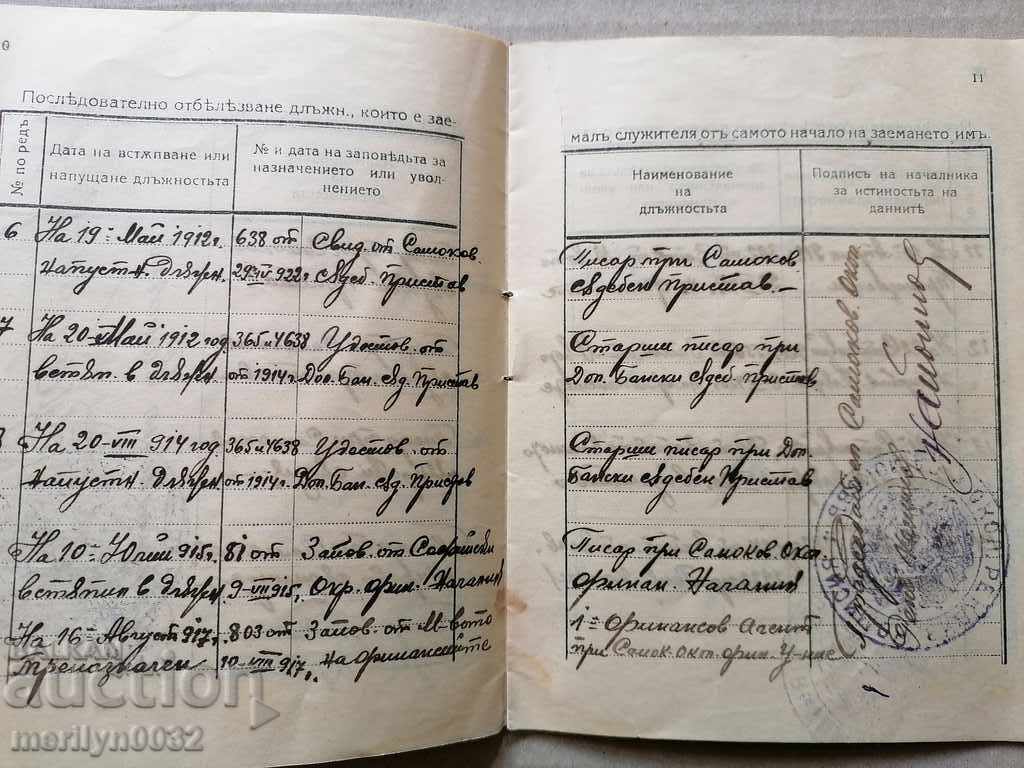 0
Послѣдователно отбѣлѣзване длъжн., които е зае-
№ по редъ
Дата на встѫпване или
напущане длъжностьта
№ и дата на заповѣдьта за
назначението или увол-
нението
6 На 19 – Май 1912 г. 638 от Свид. от Самоков.
напустн. длъжн. 922 г. съдеб. Пристав
7 На 20 – Май 1912 год. 365 и 4638 Удостов. от
встъп. в длъжн. от 1914 г. Доп. Бан. съд. Пристав
На 20-VIII 914 год. 365 и 4638 Удостов. от
напустн. длъжн. от 1914 г. Доп. Бан. съд. Пристав
На 10 – Юлий 915 г. 81 от Запов. от Софийски
встѫпил в длъжн. 9-VII 915 г. Окр. фин. Началник
На 16 – Август 917 г. 803 от Запов. от М-вото
преназначен 10-VIII 917 г. на финансиите
11
малъ служителя отъ самото начало на заемането имъ.
Наименование
на
длъжностьта
Подписъ на началника
за истиностьта на
даннитѣ
Писар при Самоков
съдебен Пристав. –
Старши писар при
Доп. Бански съдеб. Пристав
Старши писар при Доп.
Бански съдебен Пристав
Писар при Самоков Окол.
Финан. Началник
1 – Финансов Агент
при Самок. окол. фин. У-ние
Самоков. окол.
BALKAN
auction
merilyn0032